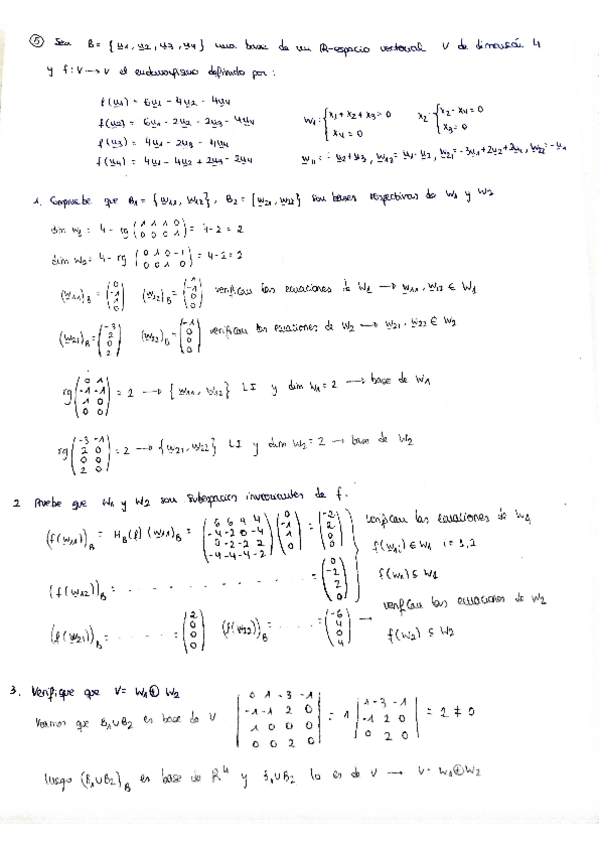 ⑤ Sea B = {u1, u2, u3, u4} una base de un R-espacio vectorial V de dimensión 4
y f: V → V el endomorfismo definido por:
f(u1) = 6u1 - 4u2 - 4u4
f(u2) = 6u1 - 2u2 - 2u3 - 4u4
f(u3) = 4u1 - 2u3 - 4u4
f(u4) = 4u1 - 4u2 + 2u3 - 2u4
W1: { x1 + x2 + x3 = 0
x4 = 0
x2 - x4 = 0
x3 = 0
w11 = - u2 + u3, w12 = u1 - u2, w21 = -3u1 + 2u2 + 2u4, w22 = -u1
1. Compruebe que B1 = {w11, w12}, B2 = {w21, w22} son bases respectivas de W1 y W2
dim W1 = 4 - rg (1 1 1 0 / 0 0 0 1) = 4 - 2 = 2
dim W2 = 4 - rg (0 1 0 -1 / 0 0 1 0) = 4 - 2 = 2
(w11)B = (0 -1 1 0) (w12)B = (1 -1 0 0) verifican las ecuaciones de W1 → w11, w12 ∈ W1
(w21)B = (-3 2 0 2) (w22)B = (-1 0 0 0) verifican las ecuaciones de W2 → w21, w22 ∈ W2
rg (0 1 / -1 -1 / 1 0 / 0 0) = 2 → {w11, w12} LI y dim W1 = 2 → base de W1
rg (-3 -1 / 2 0 / 0 0 / 2 0) = 2 → {w21, w22} LI y dim W2 = 2 → base de W2
2 Pruebe que W1 y W2 son subespacios invariantes de f.
(f(w11))B = MB(f) (w11)B = (6 6 4 4 / -4 -2 0 -4 / 0 -2 -2 2 / -4 -4 -4 -2) (0 -1 1 0) = (-2 2 0 0) verifican las ecuaciones de W1
f(w1i) ∈ W1 i = 1,2
(f(w12))B = ........ = (0 -2 2 0) f(W1) ⊆ W1
(f(w21))B = ..... = (2 0 0 0) (f(w22))B = ..... = (-6 4 0 4) → verifican las ecuaciones de W2
f(W2) ⊆ W2
3. Verifique que V = W1 ⊕ W2
Veamos que B1 ∪ B2 es base de V |0 1 -3 -1 / -1 -1 2 0 / 1 0 0 0 / 0 0 2 0| = 1 |1 -3 -1 / -1 2 0 / 0 2 0| = 2 ≠ 0
luego (B1 ∪ B2)B es base de R4 y B1 ∪ B2 lo es de V → V = W1 ⊕ W2